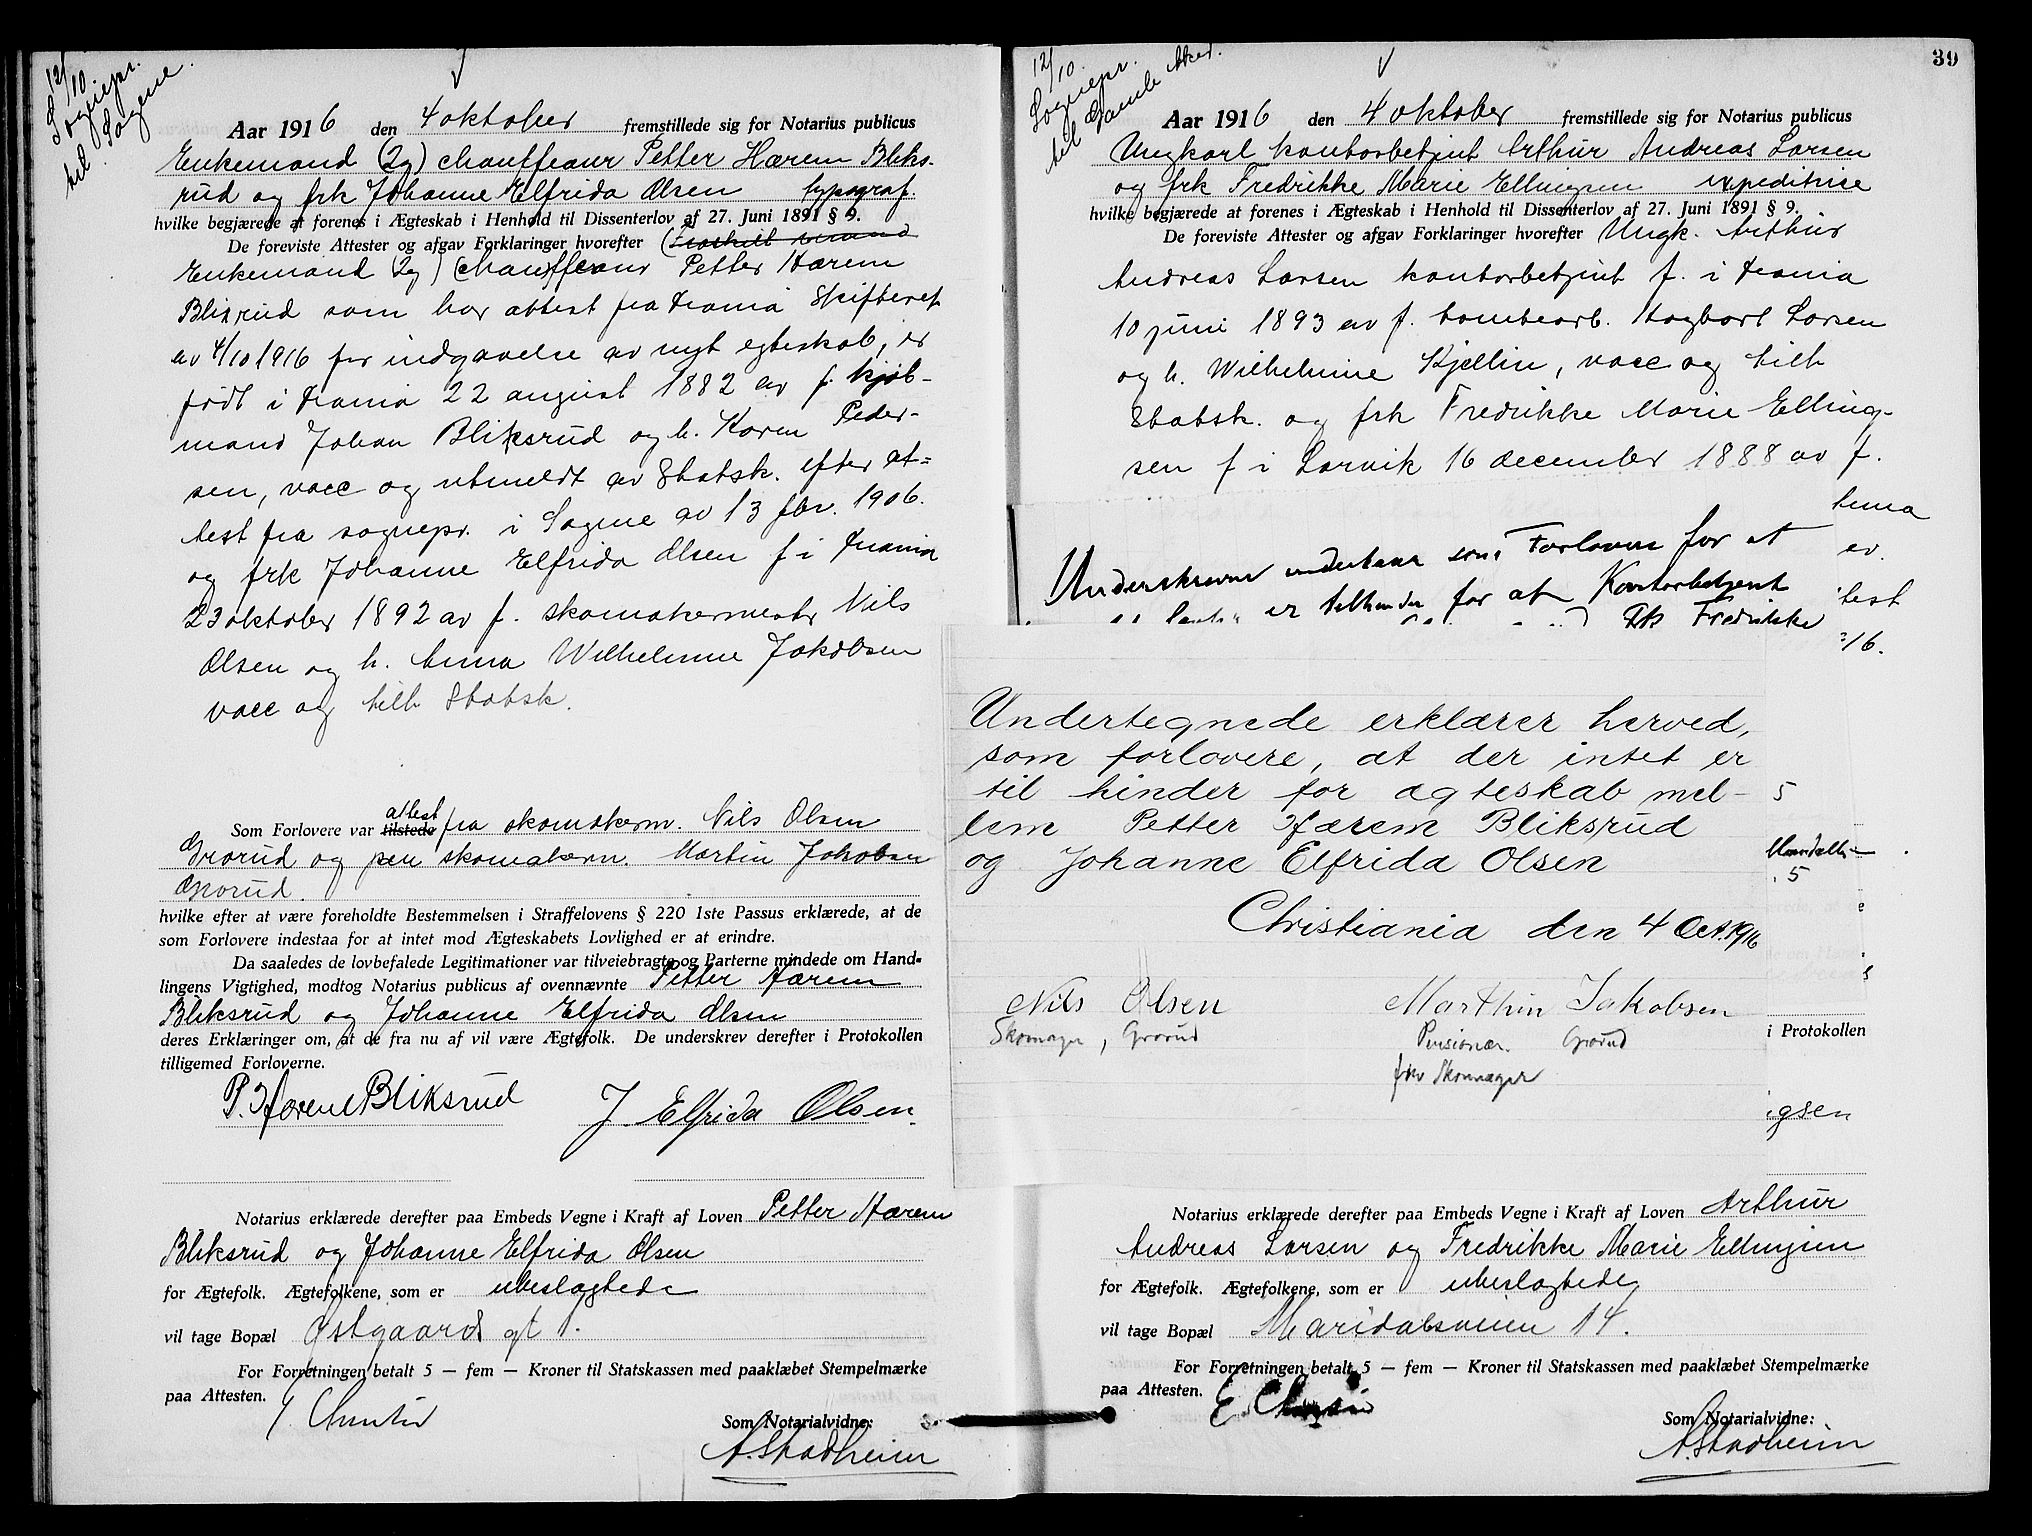 12/10.
Sognepr.
til Sagene.
Aar 1916 den 4 oktober fremstillede sig for Notarius publicus
Enkemand (2g) chauffeaur Petter Hærem Bliks-
rud og frk Johanne Elfrida Olsen typograf.
hvilke begjærede at forenes i Ægteskab i Henhold til Dissenterlov af 27. Juni 1891 § 9.
De foreviste Attester og afgav Forklaringer hvorefter
Enkemand (2g) chauffeaur Petter Hærem
Bliksrud som har attest fra Krania Skifteret
av 4/10 1916 for indgaaelse av nyt egteskab, er
født i Krania 22 august 1882 av f. kjøb-
mand Johan Bliksrud og h. Karen Peder-
sen, vacc og utmeldt av Statsk. efter at-
test fra sognepr. i Sagene av 13 fbr. 1906.
og frk Johanne Elfrida Olsen f i Krania
23 oktober 1892 av f. skomakermester Nils
Olsen og h. Anna Wilhelmine Jakobsen
vacc og tilh Statsk.
Som Forlovere var tilstede attest fra skomakerm. Nils Olsen
Grorud og pen skomakerm. Martin Jakobsen
Grorud.
hvilke efter at være foreholdte Bestemmelsen i Straffelovens § 220 1ste Passus erklærede, at de
som Forlovere indestaa for at intet mod Ægteskabets Lovlighed er at erindre.
Da saaledes de lovbefalede Legitimationer var tilveiebragte og Parterne mindede om Hand-
lingens Vigtighed, modtog Notarius publicus af ovennævnte Petter Hærem
Bliksrud og Johanne Elfrida Olsen
deres Erklæringer om, at de fra nu af vil være Ægtefolk. De underskrev derefter i Protokollen
tilligemed Forloverne.
P. Hærem Bliksrud J. Elfrida Olsen.
Notarius erklærede derefter paa Embeds Vegne i Kraft af Loven Petter Hærem
Bliksrud og Johanne Elfrida Olsen
for Ægtefolk. Ægtefolkene, som er ubeslægtede
vil tage Bopæl Østgaards gt 1.
For Forretningen betalt 5 — fem — Kroner til Statskassen med paaklæbet Stempelmærke
paa Attesten.
Som Notarialvidne:
A. Stadheim
39
12/10.
Sognepr.
til Gamle Aker.
Aar 1916 den 4 oktober fremstillede sig for Notarius publicus
Ungkarl kontorbetjent Arthur Andreas Larsen
og frk Fredrikke Marie Ellingsen expeditrise
hvilke begjærede at forenes i Ægteskab i Henhold til Dissenterlov af 27. Juni 1891 § 9.
De foreviste Attester og afgav Forklaringer hvorefter Ungk. Arthur
Andreas Larsen kontorbetjent f. i Krania
10 juni 1893 av f. tombearb. Hagbart Larsen
og h. Wilhelmine Kjellin, vacc og tilh
Statsk. og frk Fredrikke Marie Elling-
sen f i Larvik 16 december 1888 av f.
Underskrevne indestaar som Forlovere for at
er tilhinder for at Kontorbetjent
Frk Fredrikke
test
16.
Undertegnede erklærer herved,
som forlovere, at der intet er
til hinder for ægteskab mel-
lem Petter Hærem Bliksrud
og Johanne Elfrida Olsen
Christiania den 4 Oct. 1916
Nils Olsen Marthin Jakobsen
Skomager, Grorud Pensionær. Grorud
før Skomager
5
5
i Protokollen
gsen
Notarius erklærede derefter paa Embeds Vegne i Kraft af Loven Arthur
Andreas Larsen og Fredrikke Marie Ellingsen
for Ægtefolk. Ægtefolkene, som er ubeslægtede
vil tage Bopæl Maridalsveien 14.
For Forretningen betalt 5 — fem — Kroner til Statskassen med paaklæbet Stempelmærke
paa Attesten.
Som Notarialvidne:
A. Stadheim